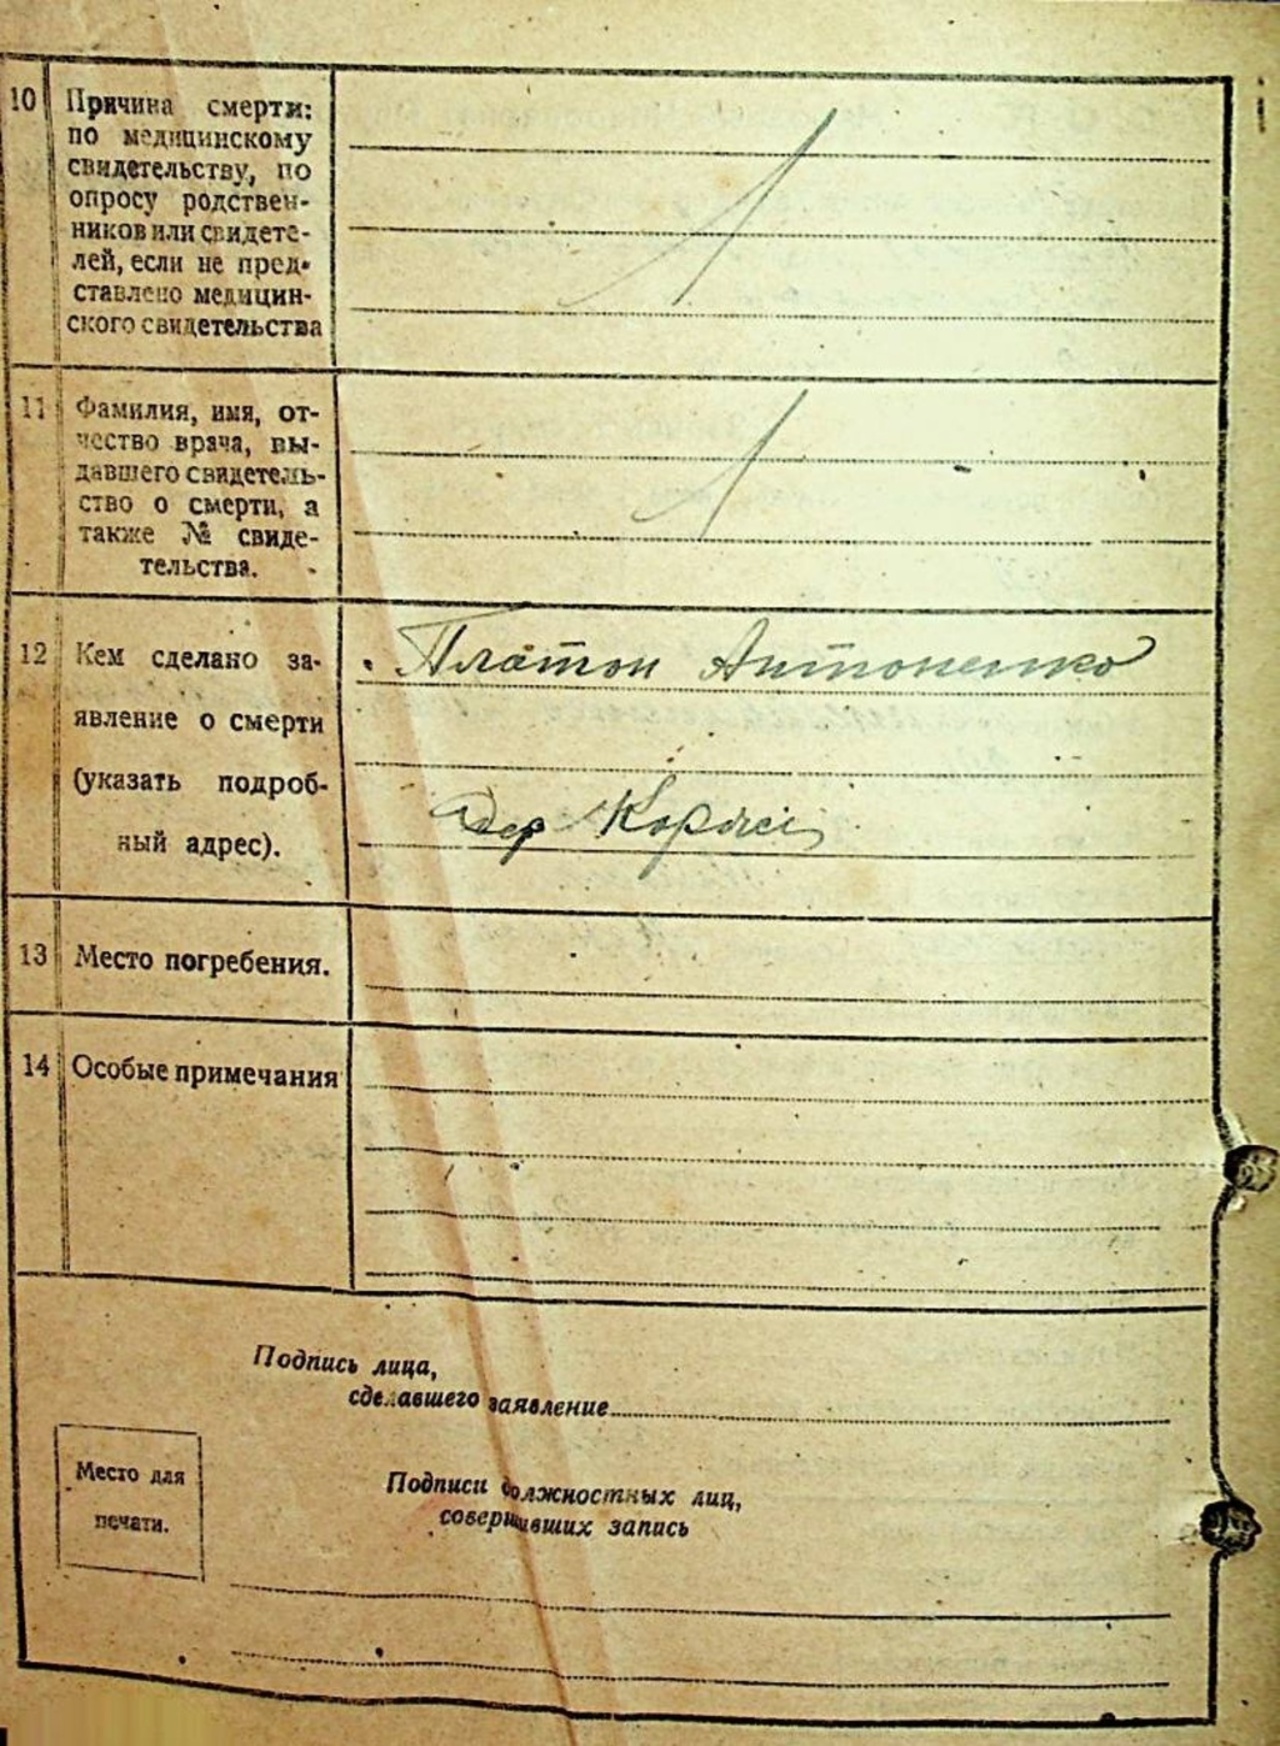 10 Причина смерти:
по медицинскому
свидетельству, по
опросу родствен-
ников или свидете-
лей, если не пред-
ставлено медицин-
ского свидетельства
11 Фамилия, имя, от-
чество врача, вы-
давшего свидетель-
ство о смерти, а
также № свиде-
тельства.
12 Кем сделано за-
явление о смерти
(указать подроб-
ный адрес).
Платон Антоненко
дер
13 Место погребения.
14 Особые примечания
Подпись лица,
сделавшего заявление
Место для
печати.
Подписи должностных лиц,
совершивших запись